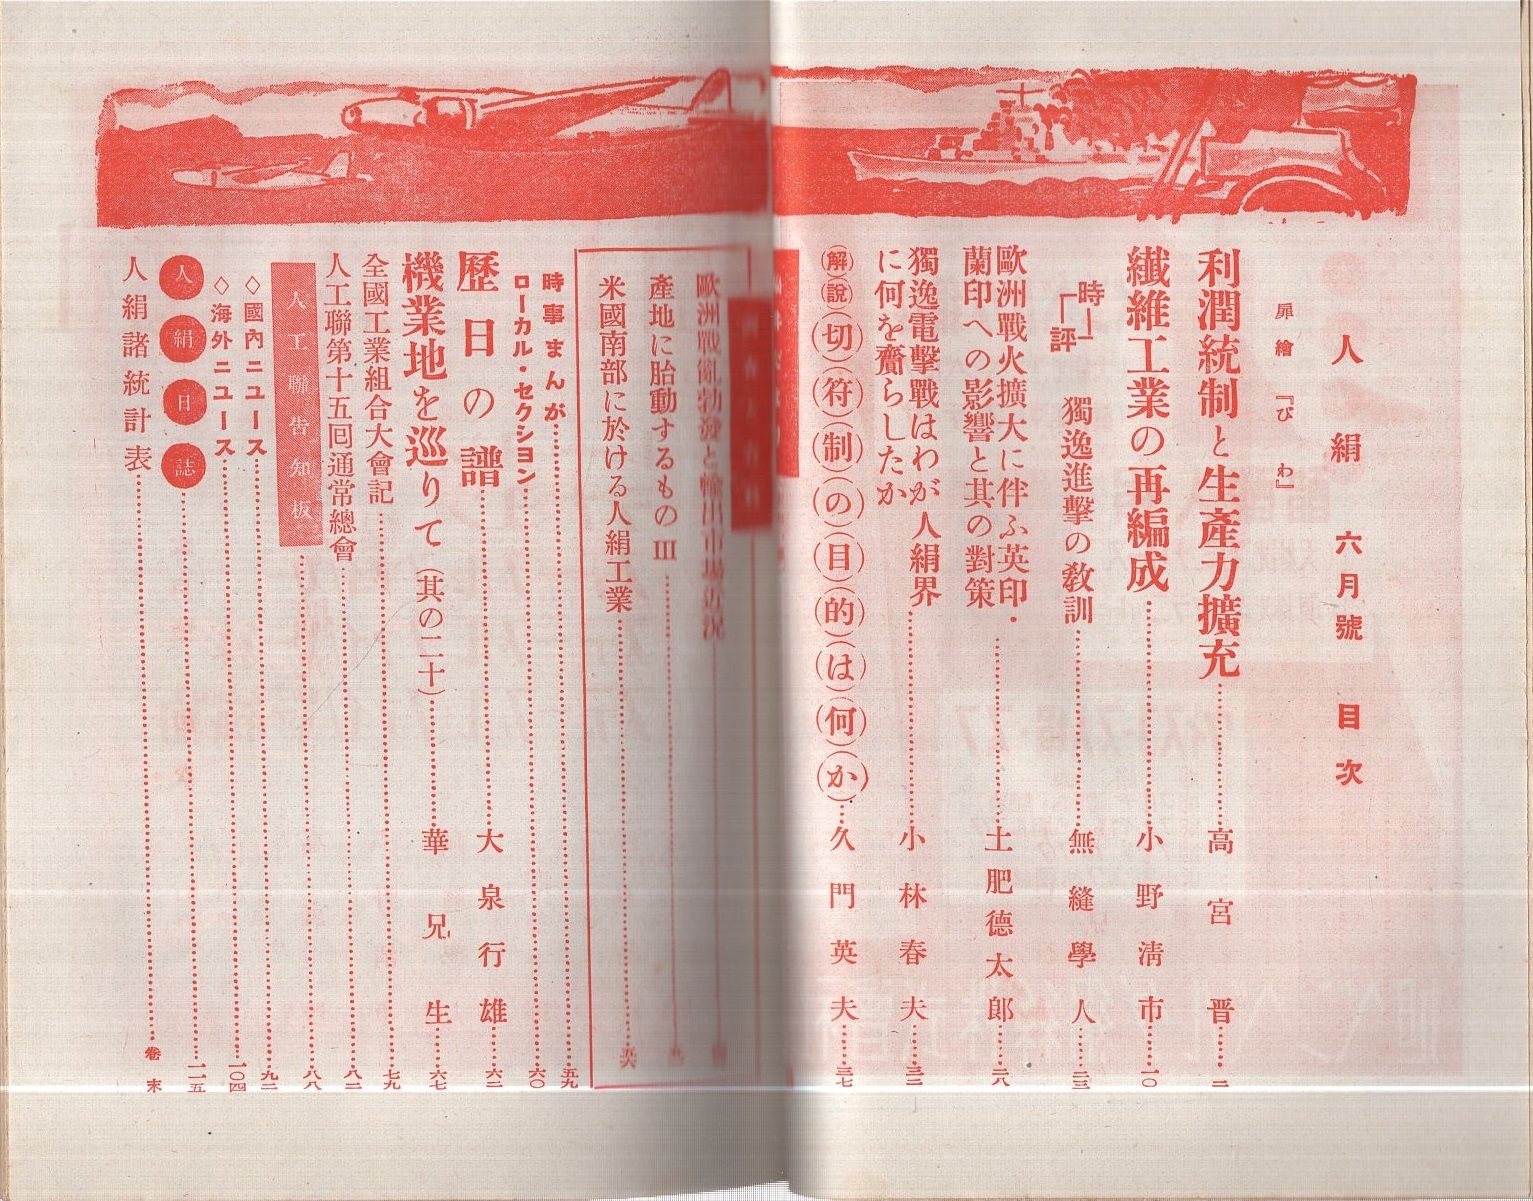 人絹 六月號 目次
扉繪『びわ』
利潤統制と生產力擴充……高宮晋……二
纖維工業の再編成……小野淸市……一〇
時評 獨逸進擊の敎訓……無縫學人……二三
歐洲戰火擴大に伴ふ英印・
蘭印への影響と其の對策……土肥德太郎……二八
獨逸電擊戰はわが人絹界
に何を齎らしたか……小林春夫……三二
(解)(說)(切)(符)(制)(の)(目)(的)(は)(何)(か)……久門英夫……三七
歐洲戰亂勃發と輸出市場近況
產地に胎動するもの III
米國南部に於ける人絹工業……五六
時事まんが……五九
ローカル・セクション……六〇
歷日の譜……大泉行雄……六二
機業地を巡りて(其の二十)……華兄生……六七
全國工業組合大會記……七九
人工聯第十五囘通常總會……八二
人工聯告知板……八八
◇國內ニュース……九二
◇海外ニュース……一〇四
人絹日誌……一一五
人絹諸統計表……卷末